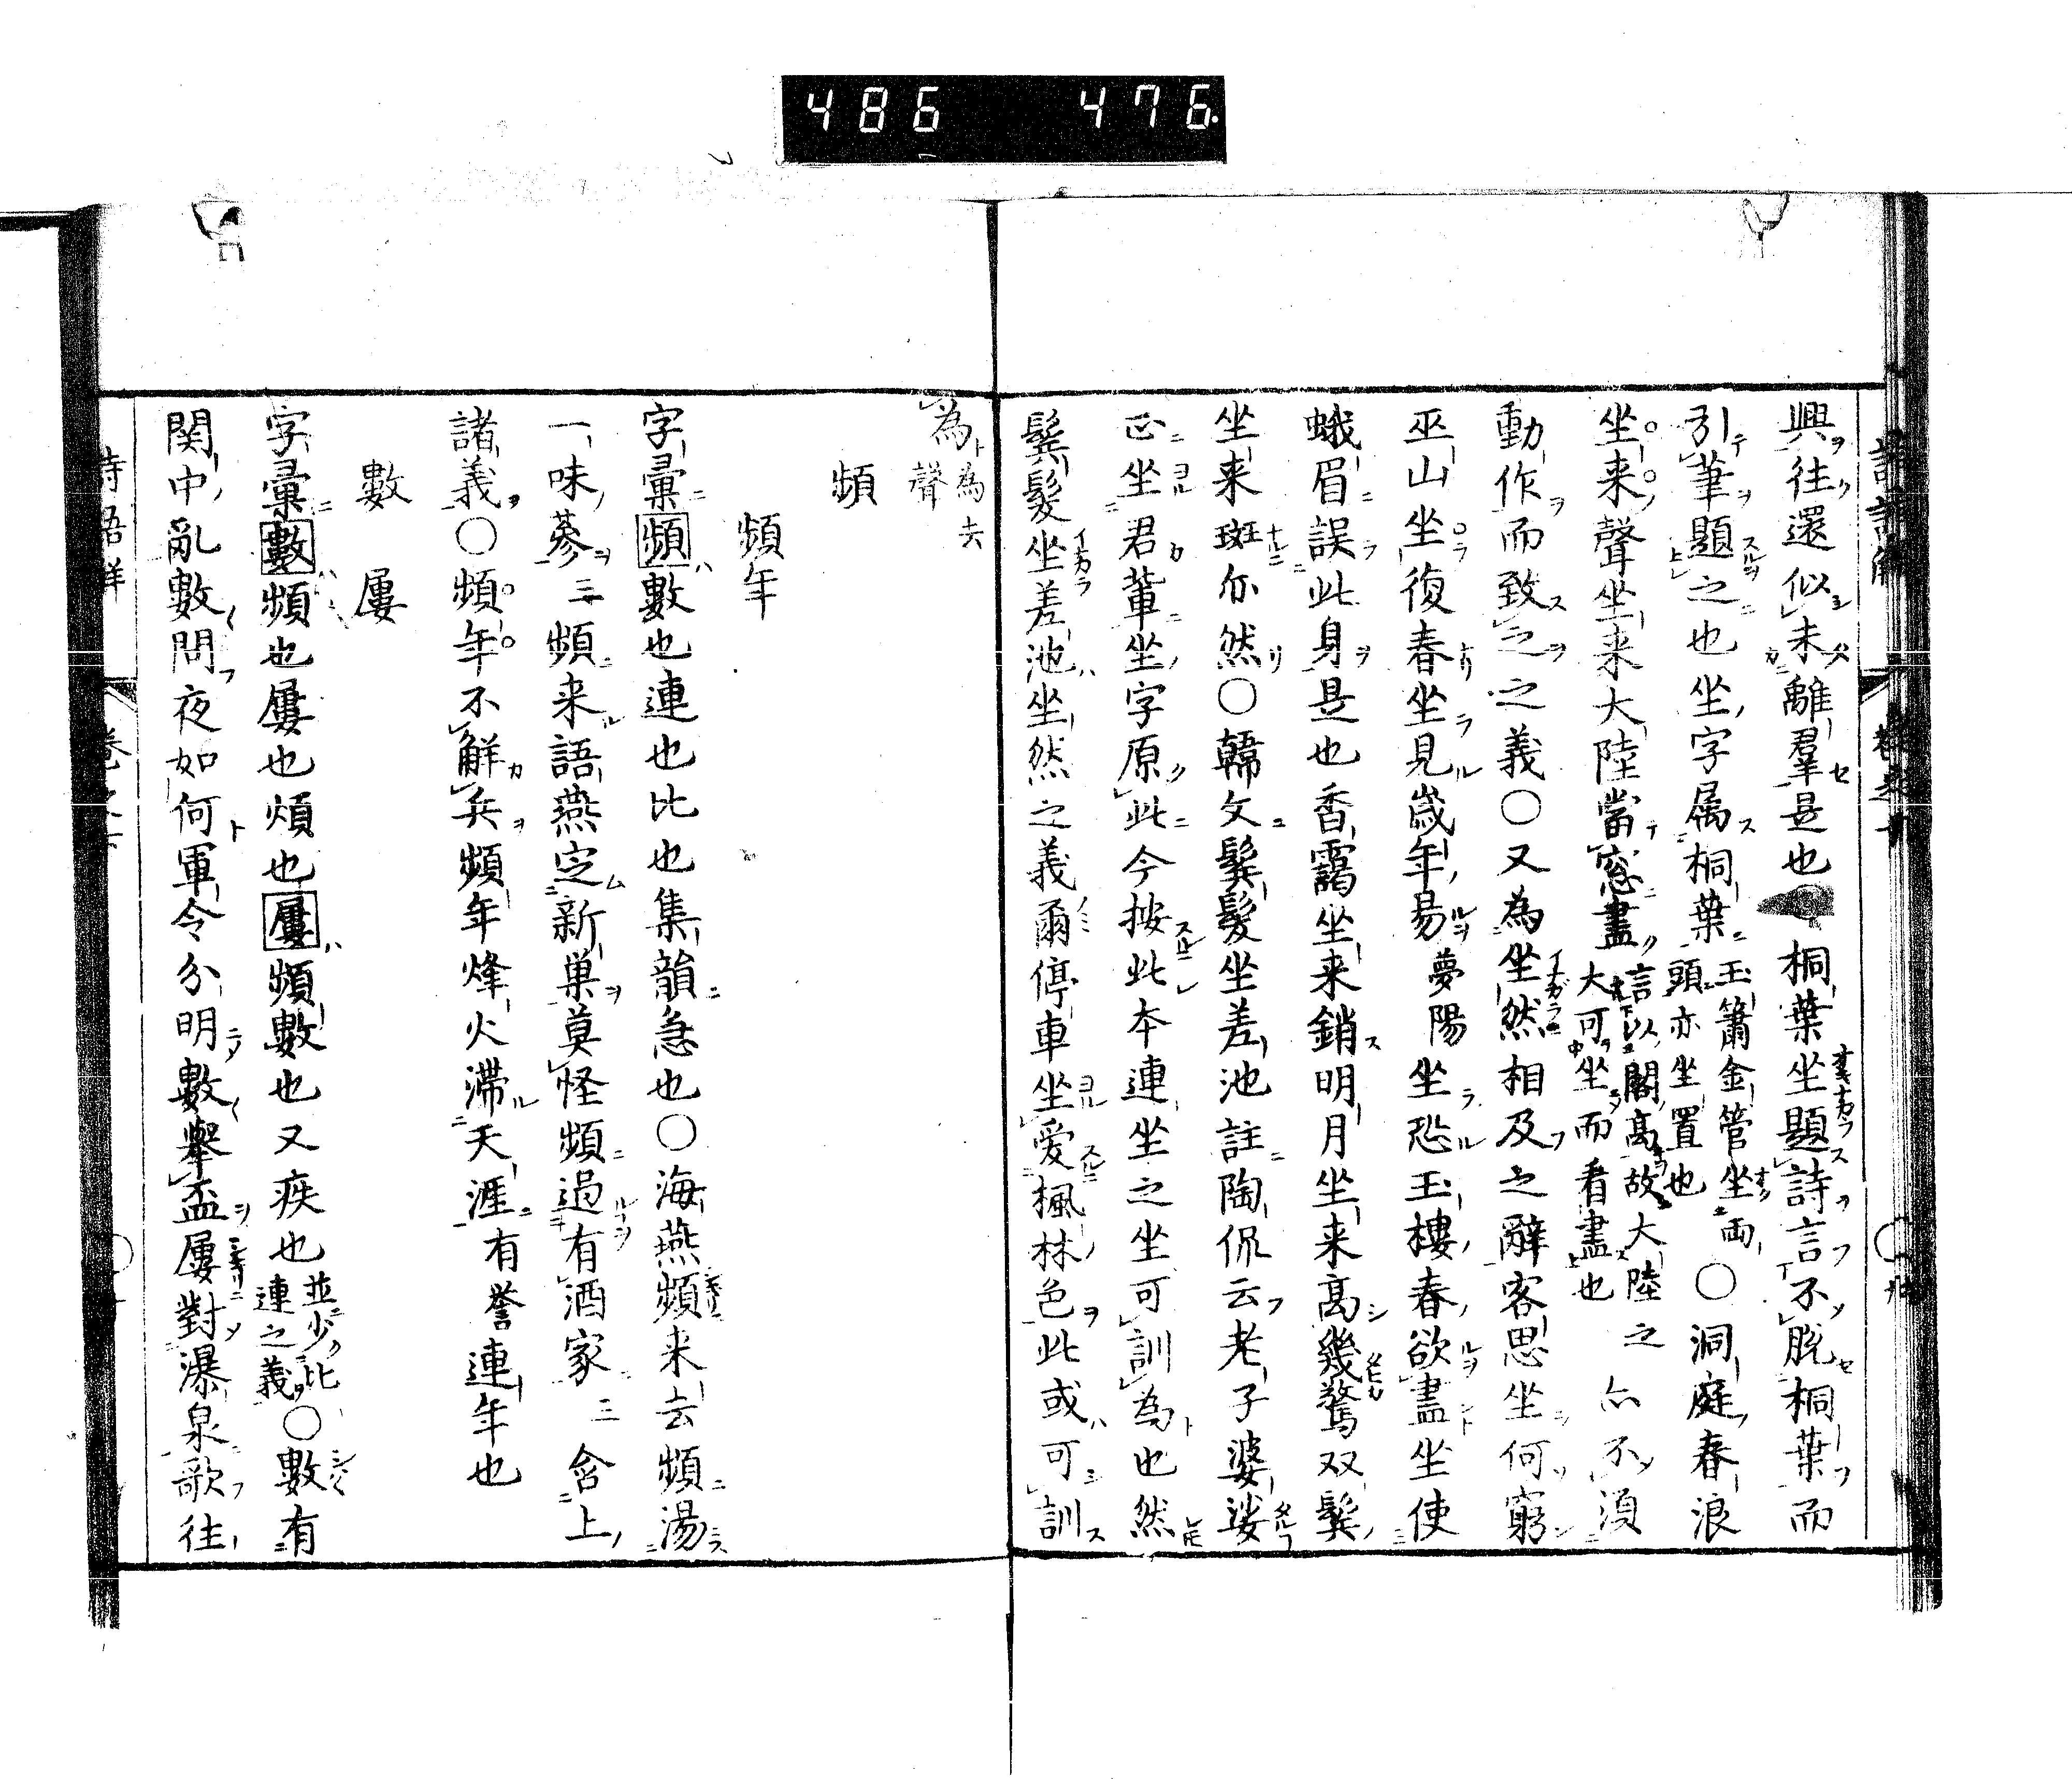 486 476.
興往還似未離羣是也 桐葉坐題詩言不脫桐葉而
引筆題之也坐字属桐葉玉簫金管坐兩頭亦坐置也〇洞庭春浪
坐来聲坐来大陸當窓盡言以閣高故大陸之大可坐而看盡也亦不須
動作而致之之義〇又為坐然相及之辭客思坐何窮
巫山坐復春坐見歳年易夢陽坐恐玉樓春欲盡坐使
蛾眉誤此身是也香靄坐来銷明月坐来高幾驚双鬢
坐来斑亦然〇韓文鬢髮坐差池註陶侃云老子婆娑
正坐君輩坐字原此今按此本連坐之坐可訓為也然
鬢髮坐差池坐然之義爾停車坐愛楓林色此或可訓
為為去聲
頻
頻年
字彙頻數也連也比也集韻急也〇海燕頻来去頻湯
一味蔘三頻来語燕定新巣莫怪頻過有酒家三含上
諸義〇頻年不解兵頻年烽火滞天涯有誉連年也
數 屢
字彙數頻也屢也煩也屢頻數也又疾也並少比連之義〇數有
関中亂數問夜如何軍令分明數擧盃屢對瀑泉歌往